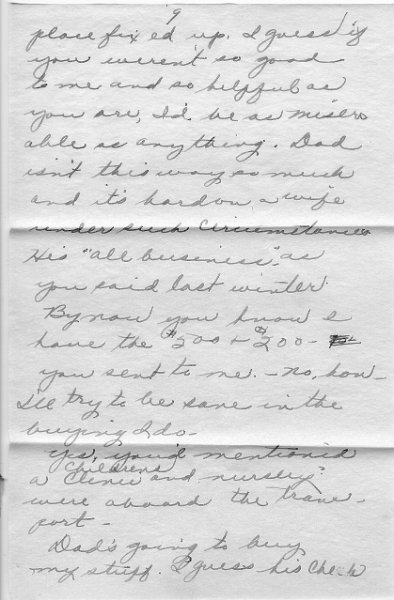 9
place fixed up. I guess if
you weren't so good
to me and so helpful as
you are, I'd be as miser-
able as anything. Dad
isn't this way so much
and it's hard on a wife
under such circumstances
His "all business", as
you said last winter.
By now you know I
have the $500 + $200 -
you sent to me. - No, hon -
I'll try to be sane in the
buying I do -
Yes, you'd mentioned
a Childrens Clinic and nursery
were aboard the trans-
port -
Dad's going to buy
my stuff. I guess his check